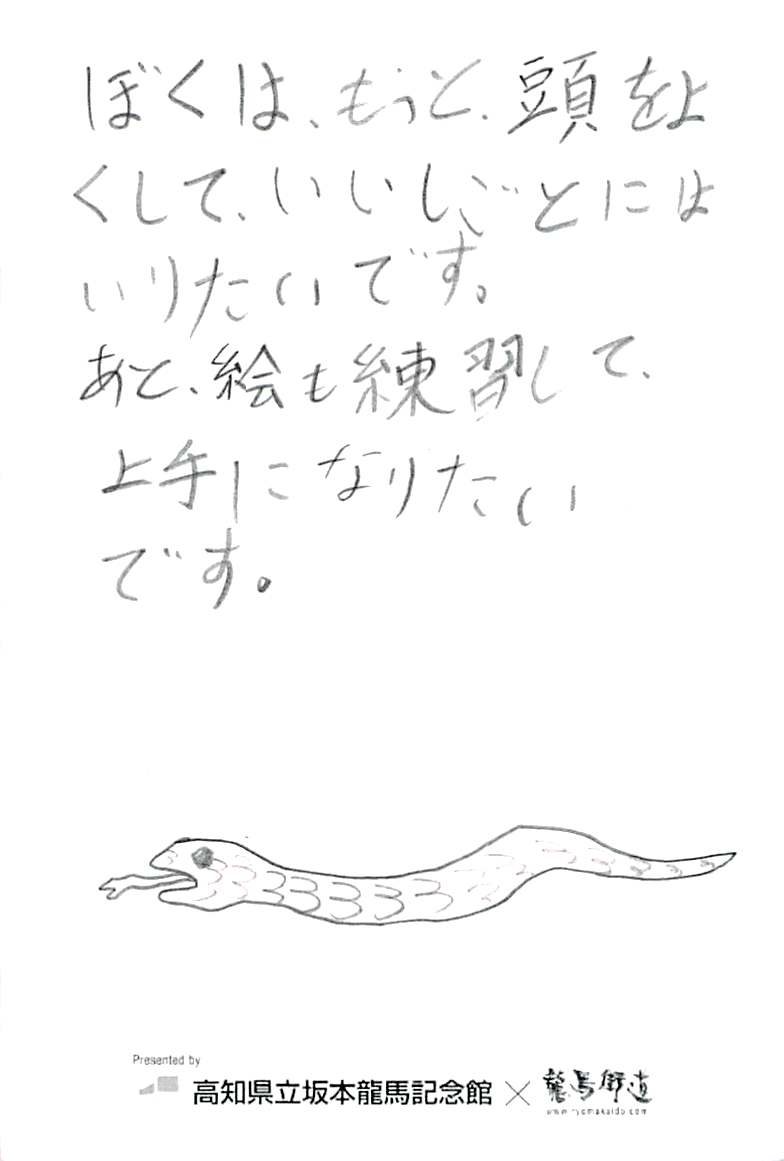 ぼくは、もっと、頭をよ
くして、いいしごとには
いりたいです。
あと、絵も練習して、
上手になりたい
です。
Presented by
高知県立坂本龍馬記念館×龍馬街道
www.ryomakaido.com